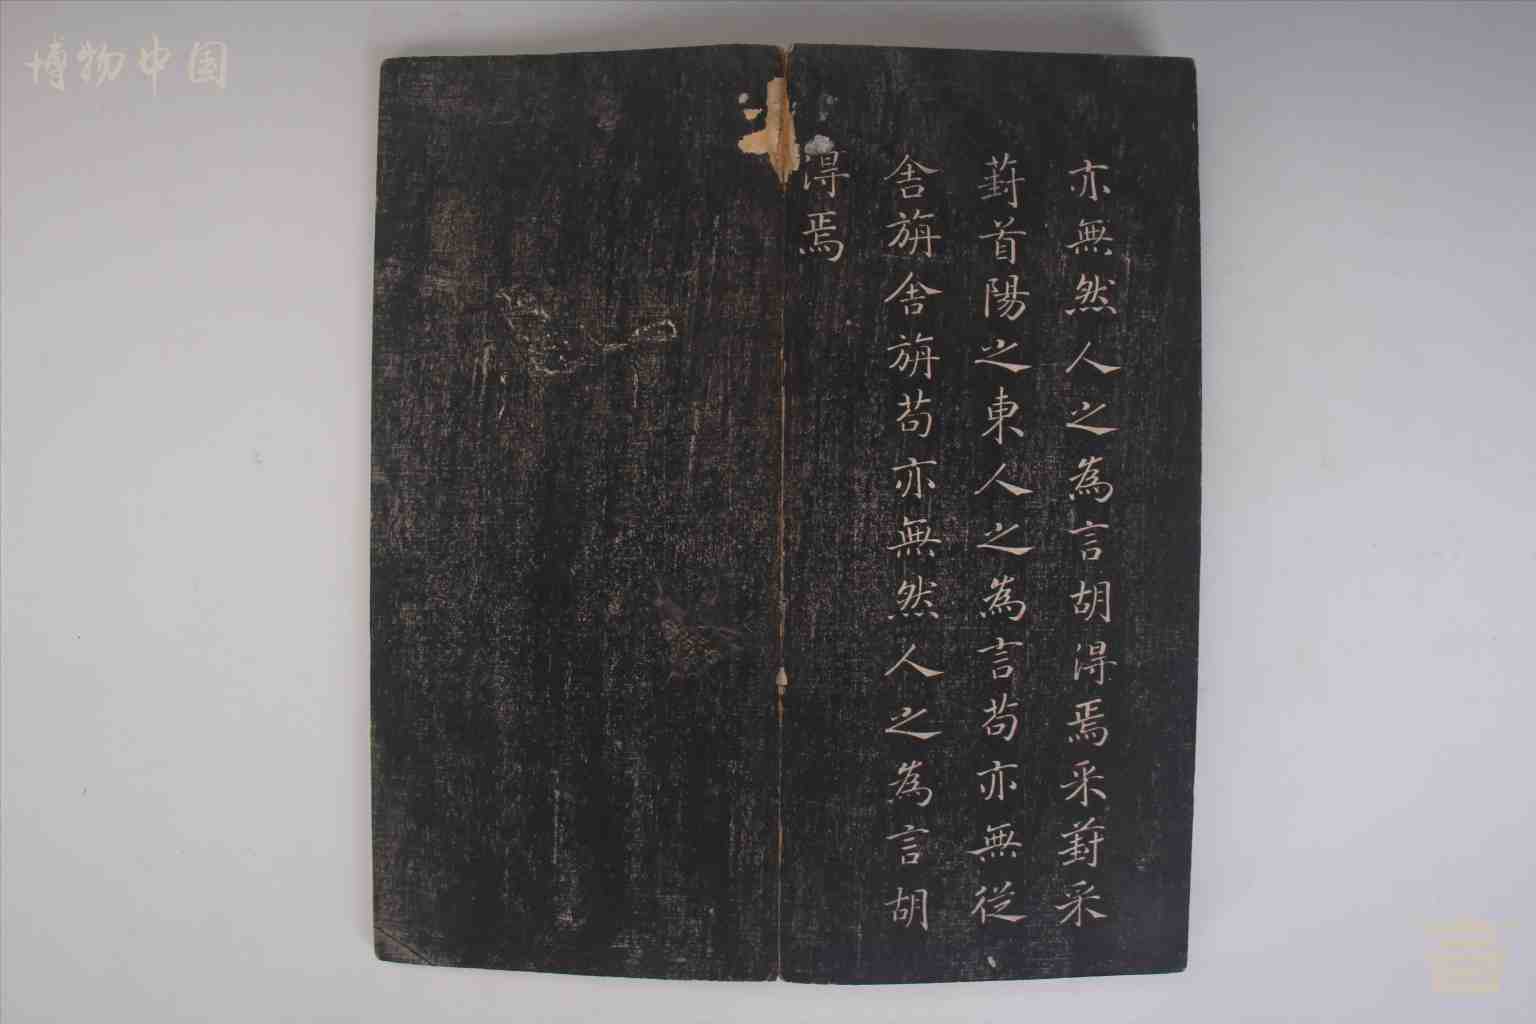 博物中国
亦無然人之為言胡得焉采葑采
葑首陽之東人之為言苟亦無從、
舍旃舍旃苟亦無然人之為言胡
得焉